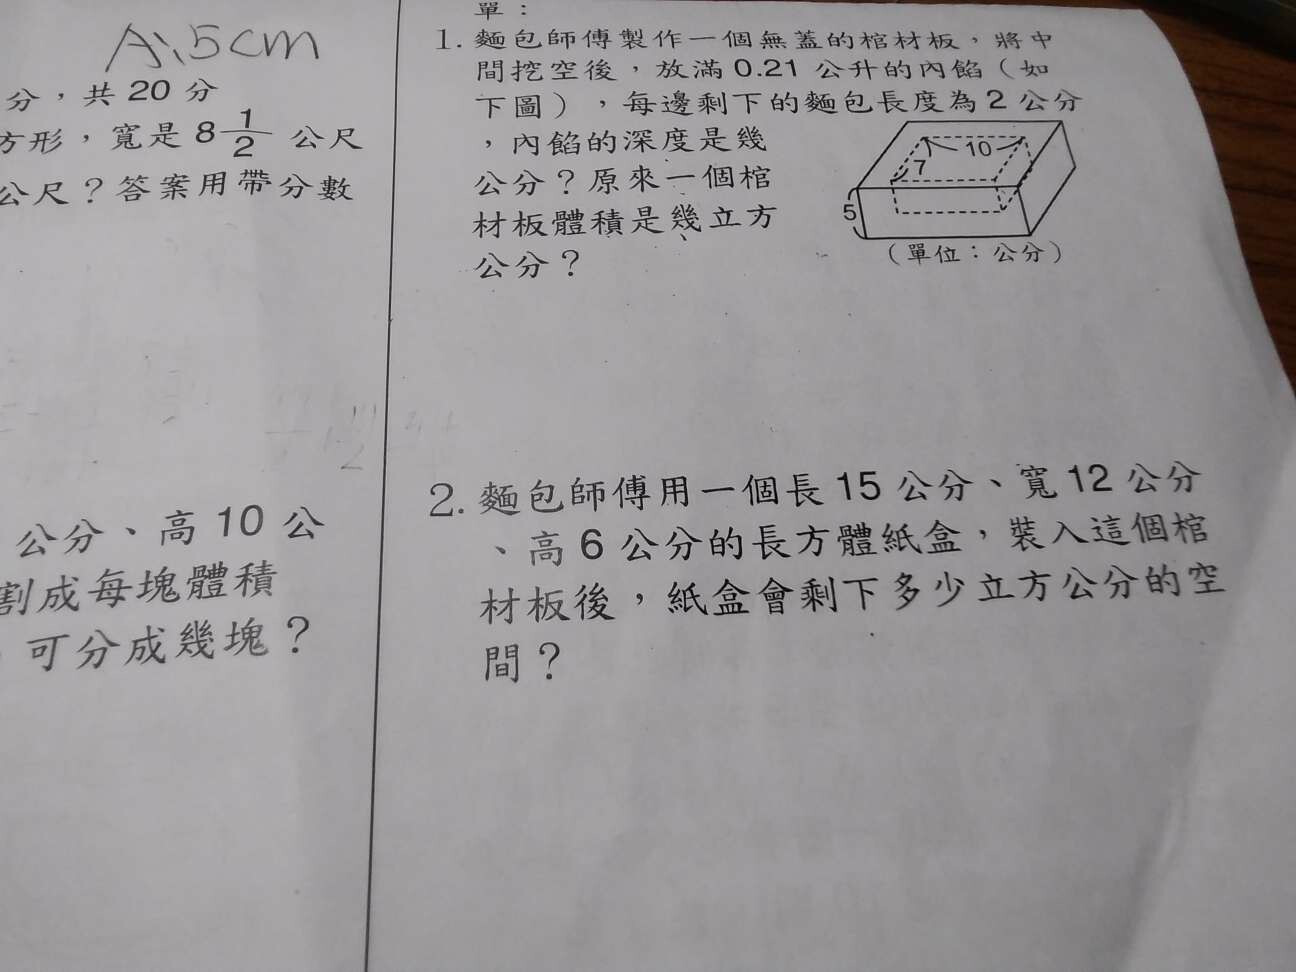 A、5cm
分，共20分
方形，寬是8 1/2 公尺
公尺？答案用帶分數
公分、高10公
割成每塊體積
可分成幾塊？
單：
1. 麵包師傅製作一個無蓋的棺材板，將中
間挖空後，放滿0.21公升的內餡（如
下圖），每邊剩下的麵包長度為2公分
，內餡的深度是幾
公分？原來一個棺
材板體積是幾立方
公分？
10
7
5
（單位：公分）
2. 麵包師傅用一個長15公分、寬12公分
、高6公分的長方體紙盒，裝入這個棺
材板後，紙盒會剩下多少立方公分的空
間？